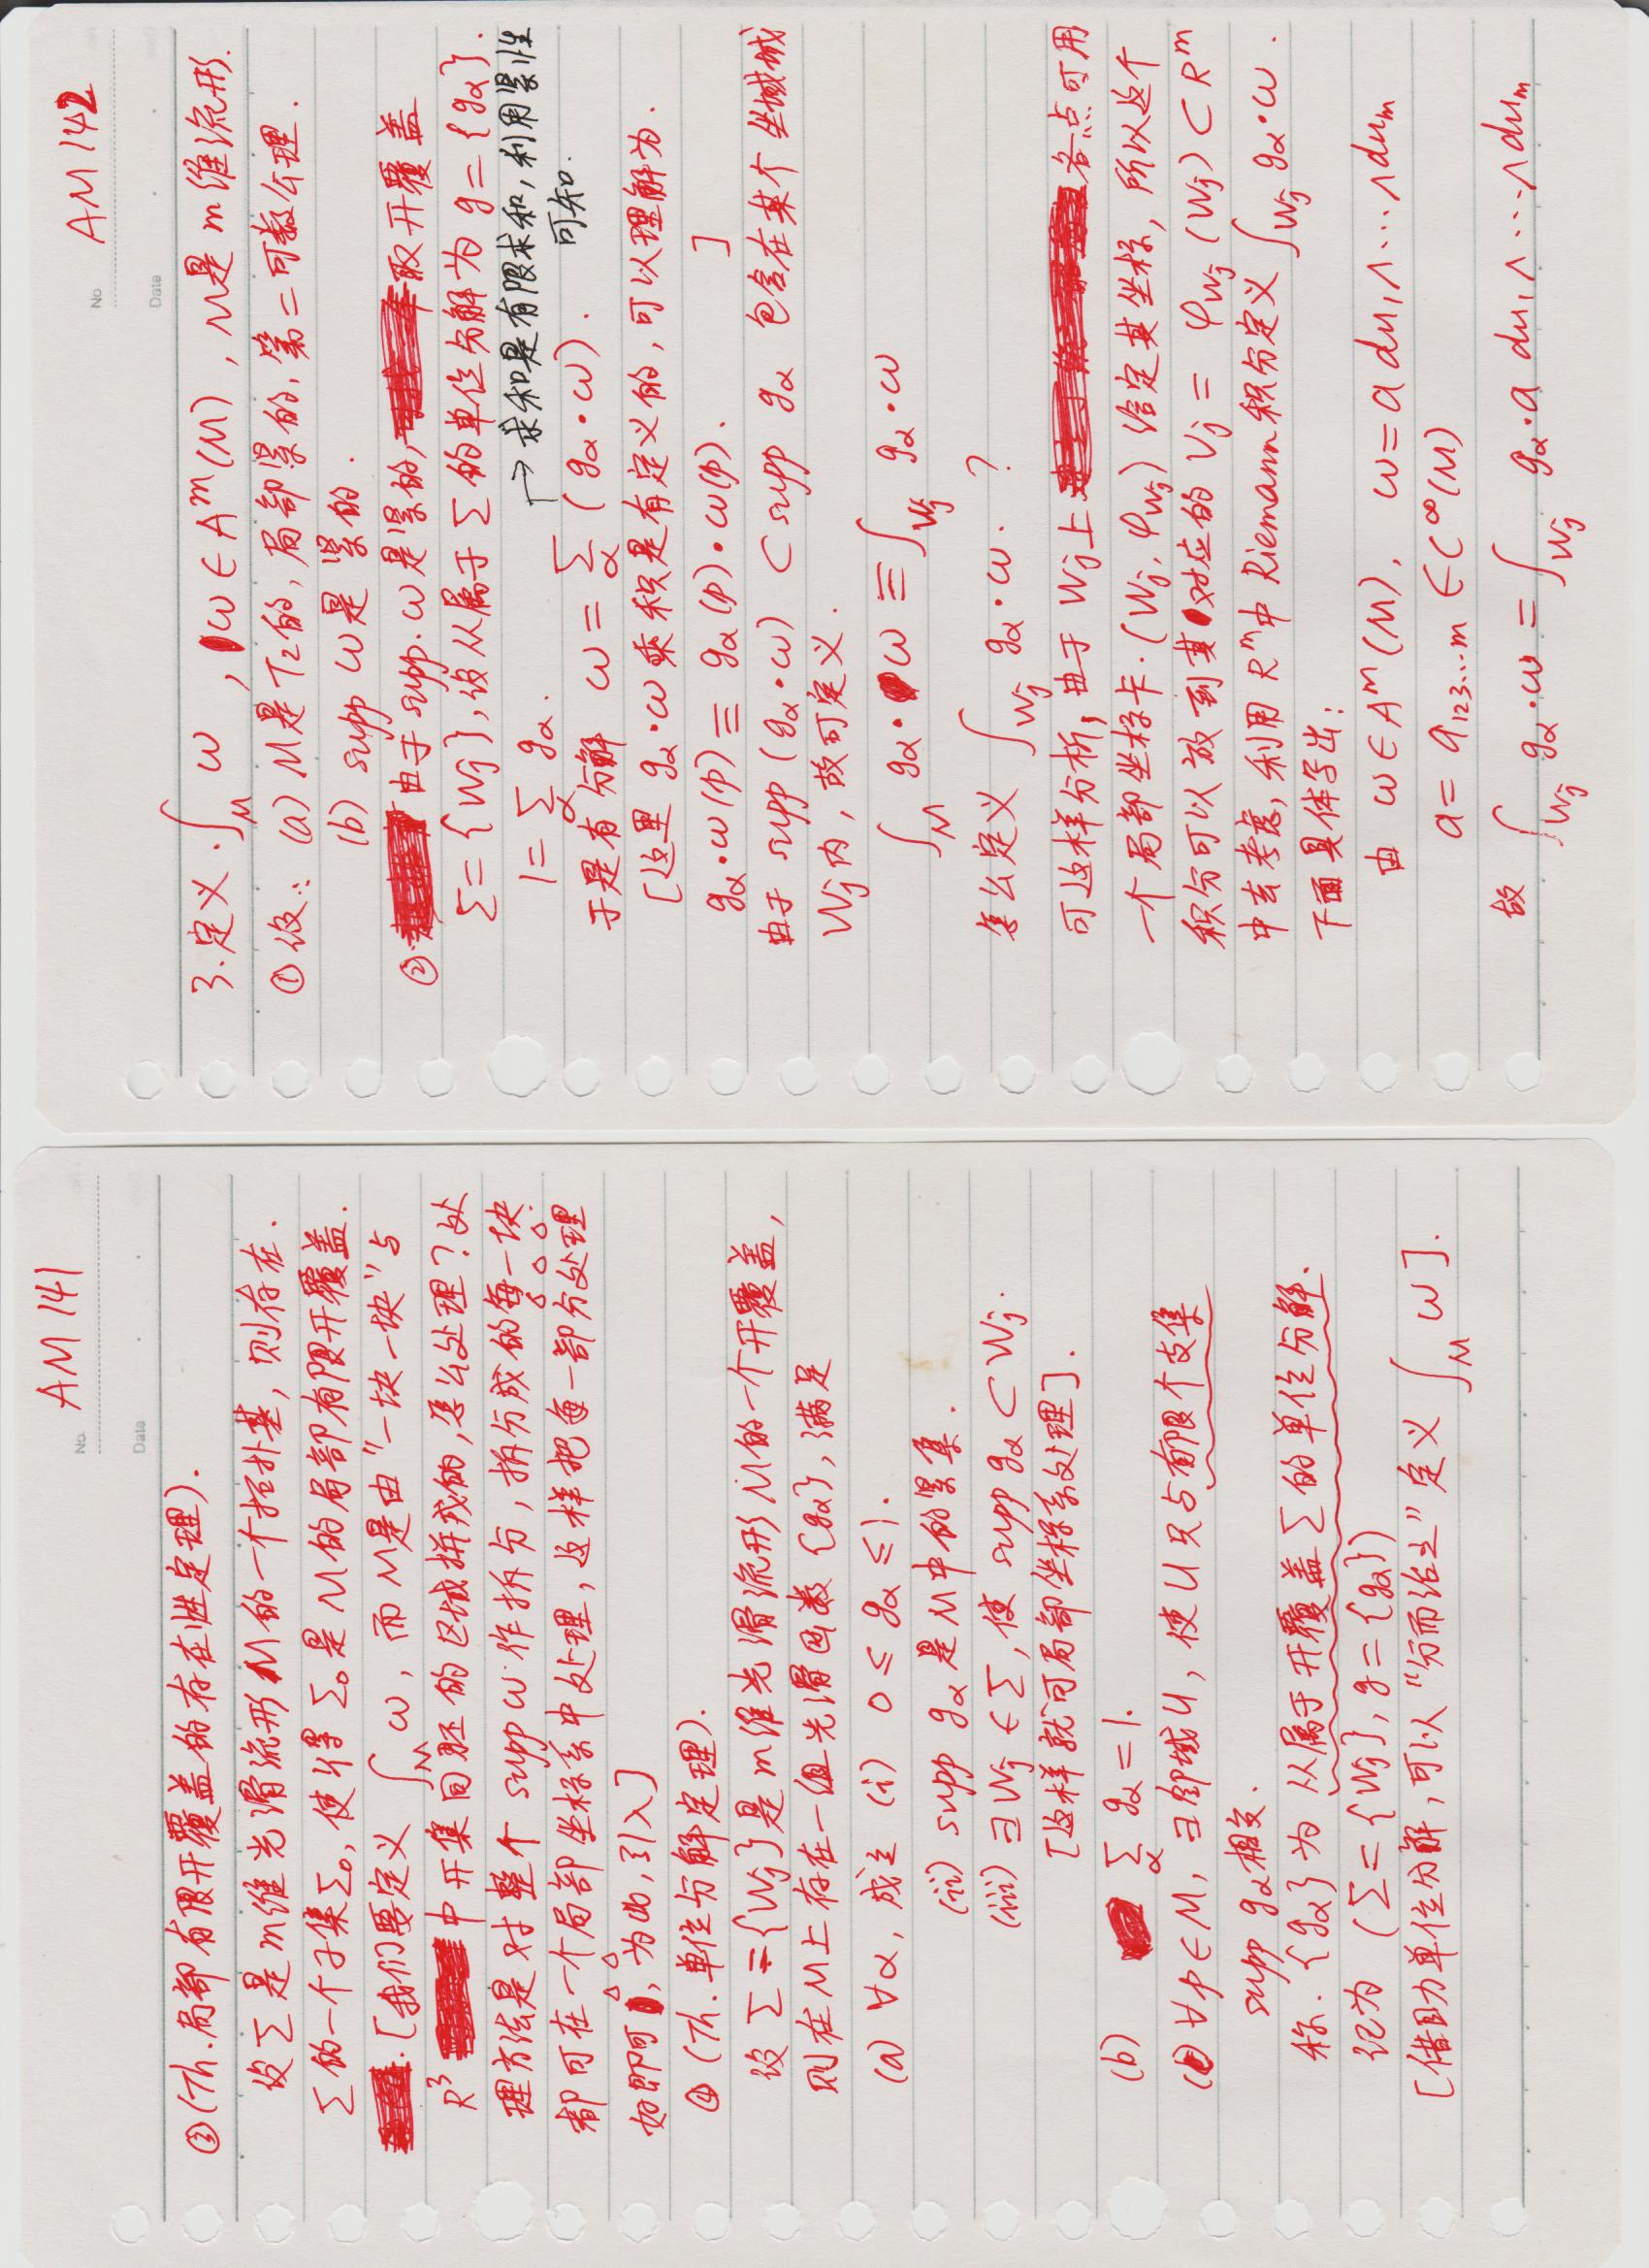 No. AM 141
Date
③(Th.局部有限开覆盖的存在性定理).
设Σ是m维光滑流形M的一个拓扑基,则存在.
Σ的一个子集Σ₀,使得Σ₀是M的局部有限开覆盖.
[我们要定义 ∫_M ω,而M是由"一块一块"与
R³中开集同胚的区域拼成的,怎么处理?处
理方法是对整个 supp ω 作拆分,拆分成的每一块
都可在一个局部坐标系中处理,这样把每一部分处理
好即可,为此,引入]
④(Th.单位分解定理).
设Σ={Wj}是m维光滑流形M的一个开覆盖,
则在M上存在一组光滑函数{gα},满足
(a) ∀α,成立 (i) 0 ≤ gα ≤ 1.
(ii) supp gα 是M中的紧集.
(iii) ∃Wj ∈ Σ,使 supp gα ⊂ Wj.
[这样就可局部坐标系处理].
(b) Σ_α gα = 1.
(c) ∀p∈M, ∃邻域U,使U只与有限个支集
supp gα相交.
称.{gα}为 从属于开覆盖Σ的单位分解.
记为 (Σ={Wj}, g={gα})
[借助单位分解,可以"分而治之"定义 ∫_M ω].
No. AM 142
Date
3.定义.∫_M ω , ω∈A^m(M), M是m维流形.
①设: (a) M是T2的,局部紧的,第二可数公理.
(b) supp ω是紧的.
② 由于supp.ω是紧的,取开覆盖
Σ={Wj},设从属于Σ的单位分解为g={gα}.
1=Σ_α gα.
→求和是有限求和,利用紧性
可知.
于是有分解 ω=Σ_α (gα·ω).
[这里 gα·ω乘积是有定义的,可以理解为.
gα·ω(p) ≡ gα(p)·ω(p). ]
由于 supp (gα·ω) ⊂ supp gα 包含在某个坐域域
Wj内,故可定义.
∫_M gα·ω ≡ ∫_Wj gα·ω
怎么定义 ∫_Wj gα·ω. ?
可这样分析,由于Wj上各点可用
一个局部坐标卡.(Wj, φ_Wj)给定其坐标,所以这个
积分可以放到其对应的 Vj = φ_Wj(Wj) ⊂ R^m
中去考虑,利用R^m中Riemann积分定义 ∫_Wj gα·ω.
下面具体写出:
由 ω∈A^m(M), ω=a du₁∧···∧du_m
a= a_123···m ∈C^∞(M)
故 ∫_Wj gα·ω = ∫_Wj gα·a du₁∧···∧du_m